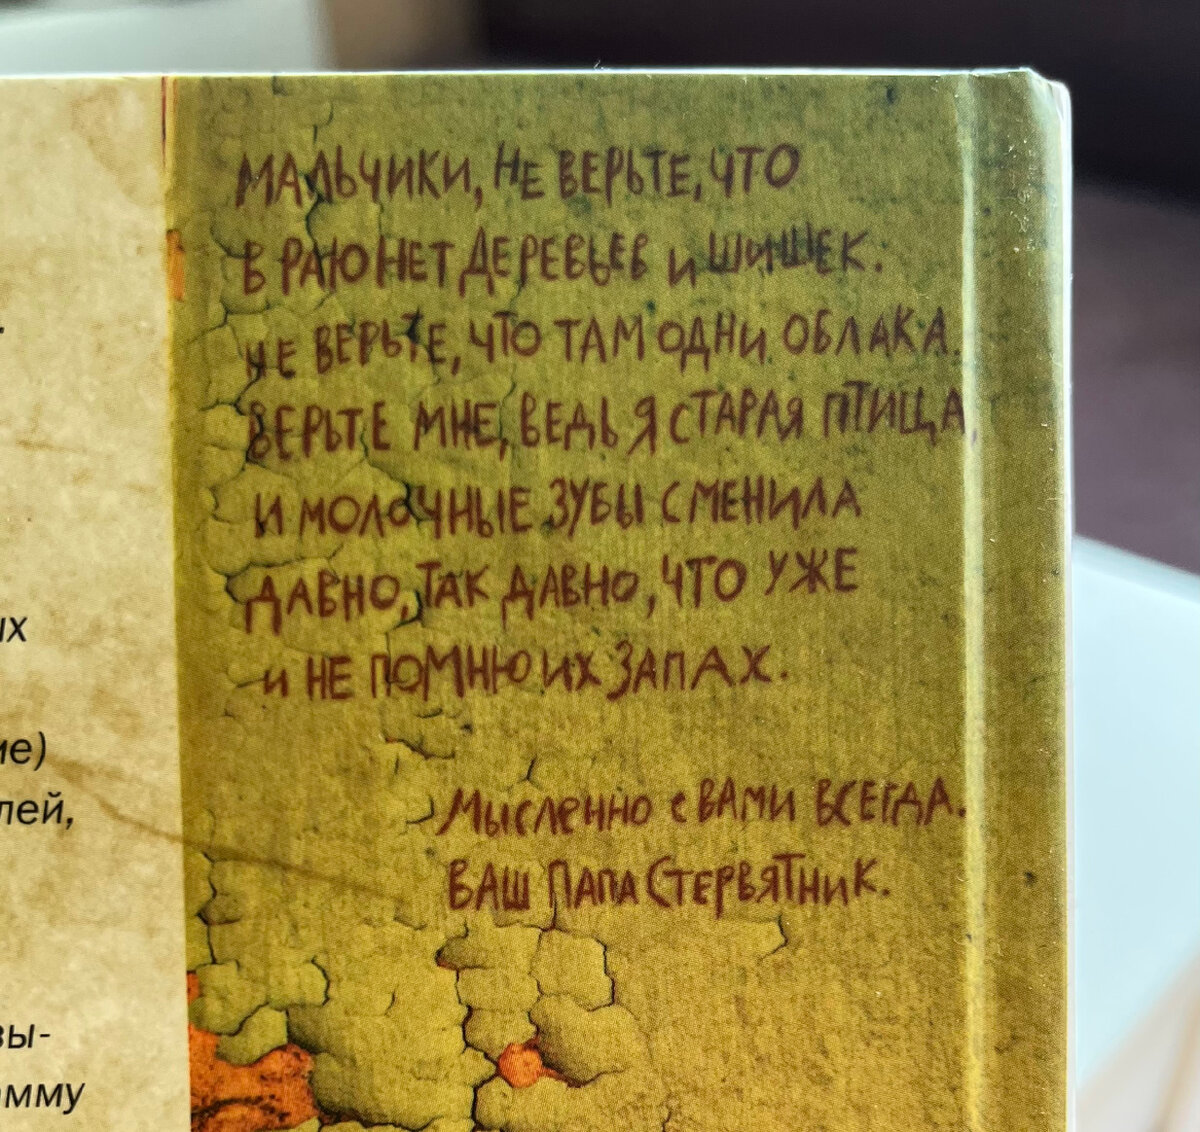 МАЛЬЧИКИ, НЕ ВЕРЬТЕ, ЧТО
В РАЮ НЕТ ДЕРЕВЬЕВ И ШИШЕК.
НЕ ВЕРЬТЕ, ЧТО ТАМ ОДНИ ОБЛАКА.
ВЕРЬТЕ МНЕ, ВЕДЬ Я СТАРАЯ ПТИЦА,
И МОЛОЧНЫЕ ЗУБЫ СМЕНИЛА
ДАВНО, ТАК ДАВНО, ЧТО УЖЕ
И НЕ ПОМНЮ ИХ ЗАПАХ.
МЫСЛЕННО С ВАМИ ВСЕГДА.
ВАШ ПАПА СТЕРВЯТНИК.